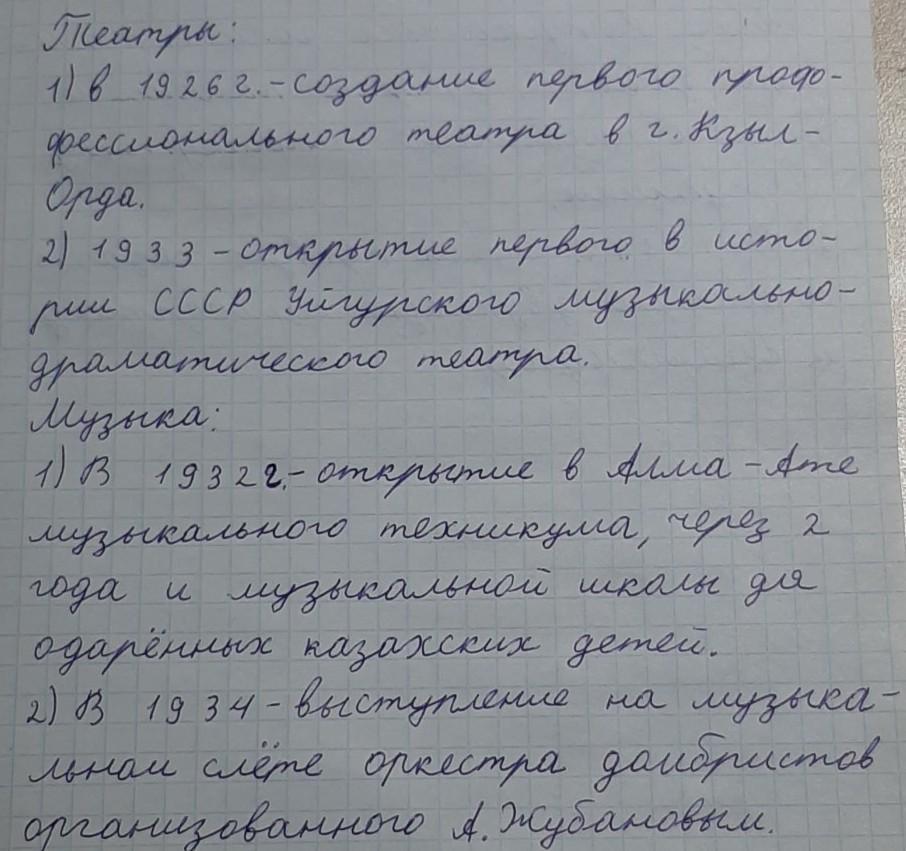 Театры:
1) в 1926 г. - создание первого профо-
фессионального театра в г. Кзыл-
Орда.
2) 1933 - открытие первого в исто-
рии СССР Уйгурского музыкально-
драматического театра.
Музыка:
1) В 1932 г. - открытие в Алма-Ате
музыкального техникума, через 2
года и музыкальной школы для
одарённых казахских детей.
2) В 1934 - выступление на музыка-
льном слёте оркестра домбристов
организованного А. Жубановым.